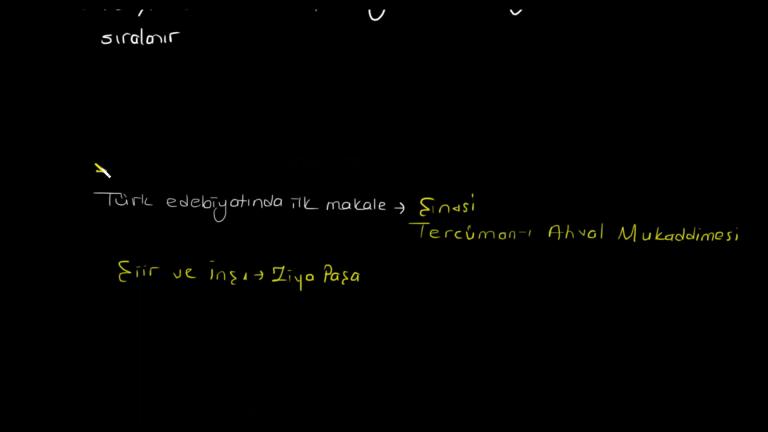 sıralanır
Türk edebiyatında ilk makale → Şinasi
Tercüman-ı Ahval Mukaddimesi
Şiir ve İnşa → Ziya Paşa